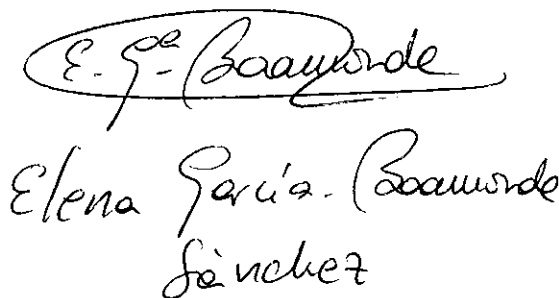 E. Gª- Baamonde
Elena García-Baamonde
Sánchez